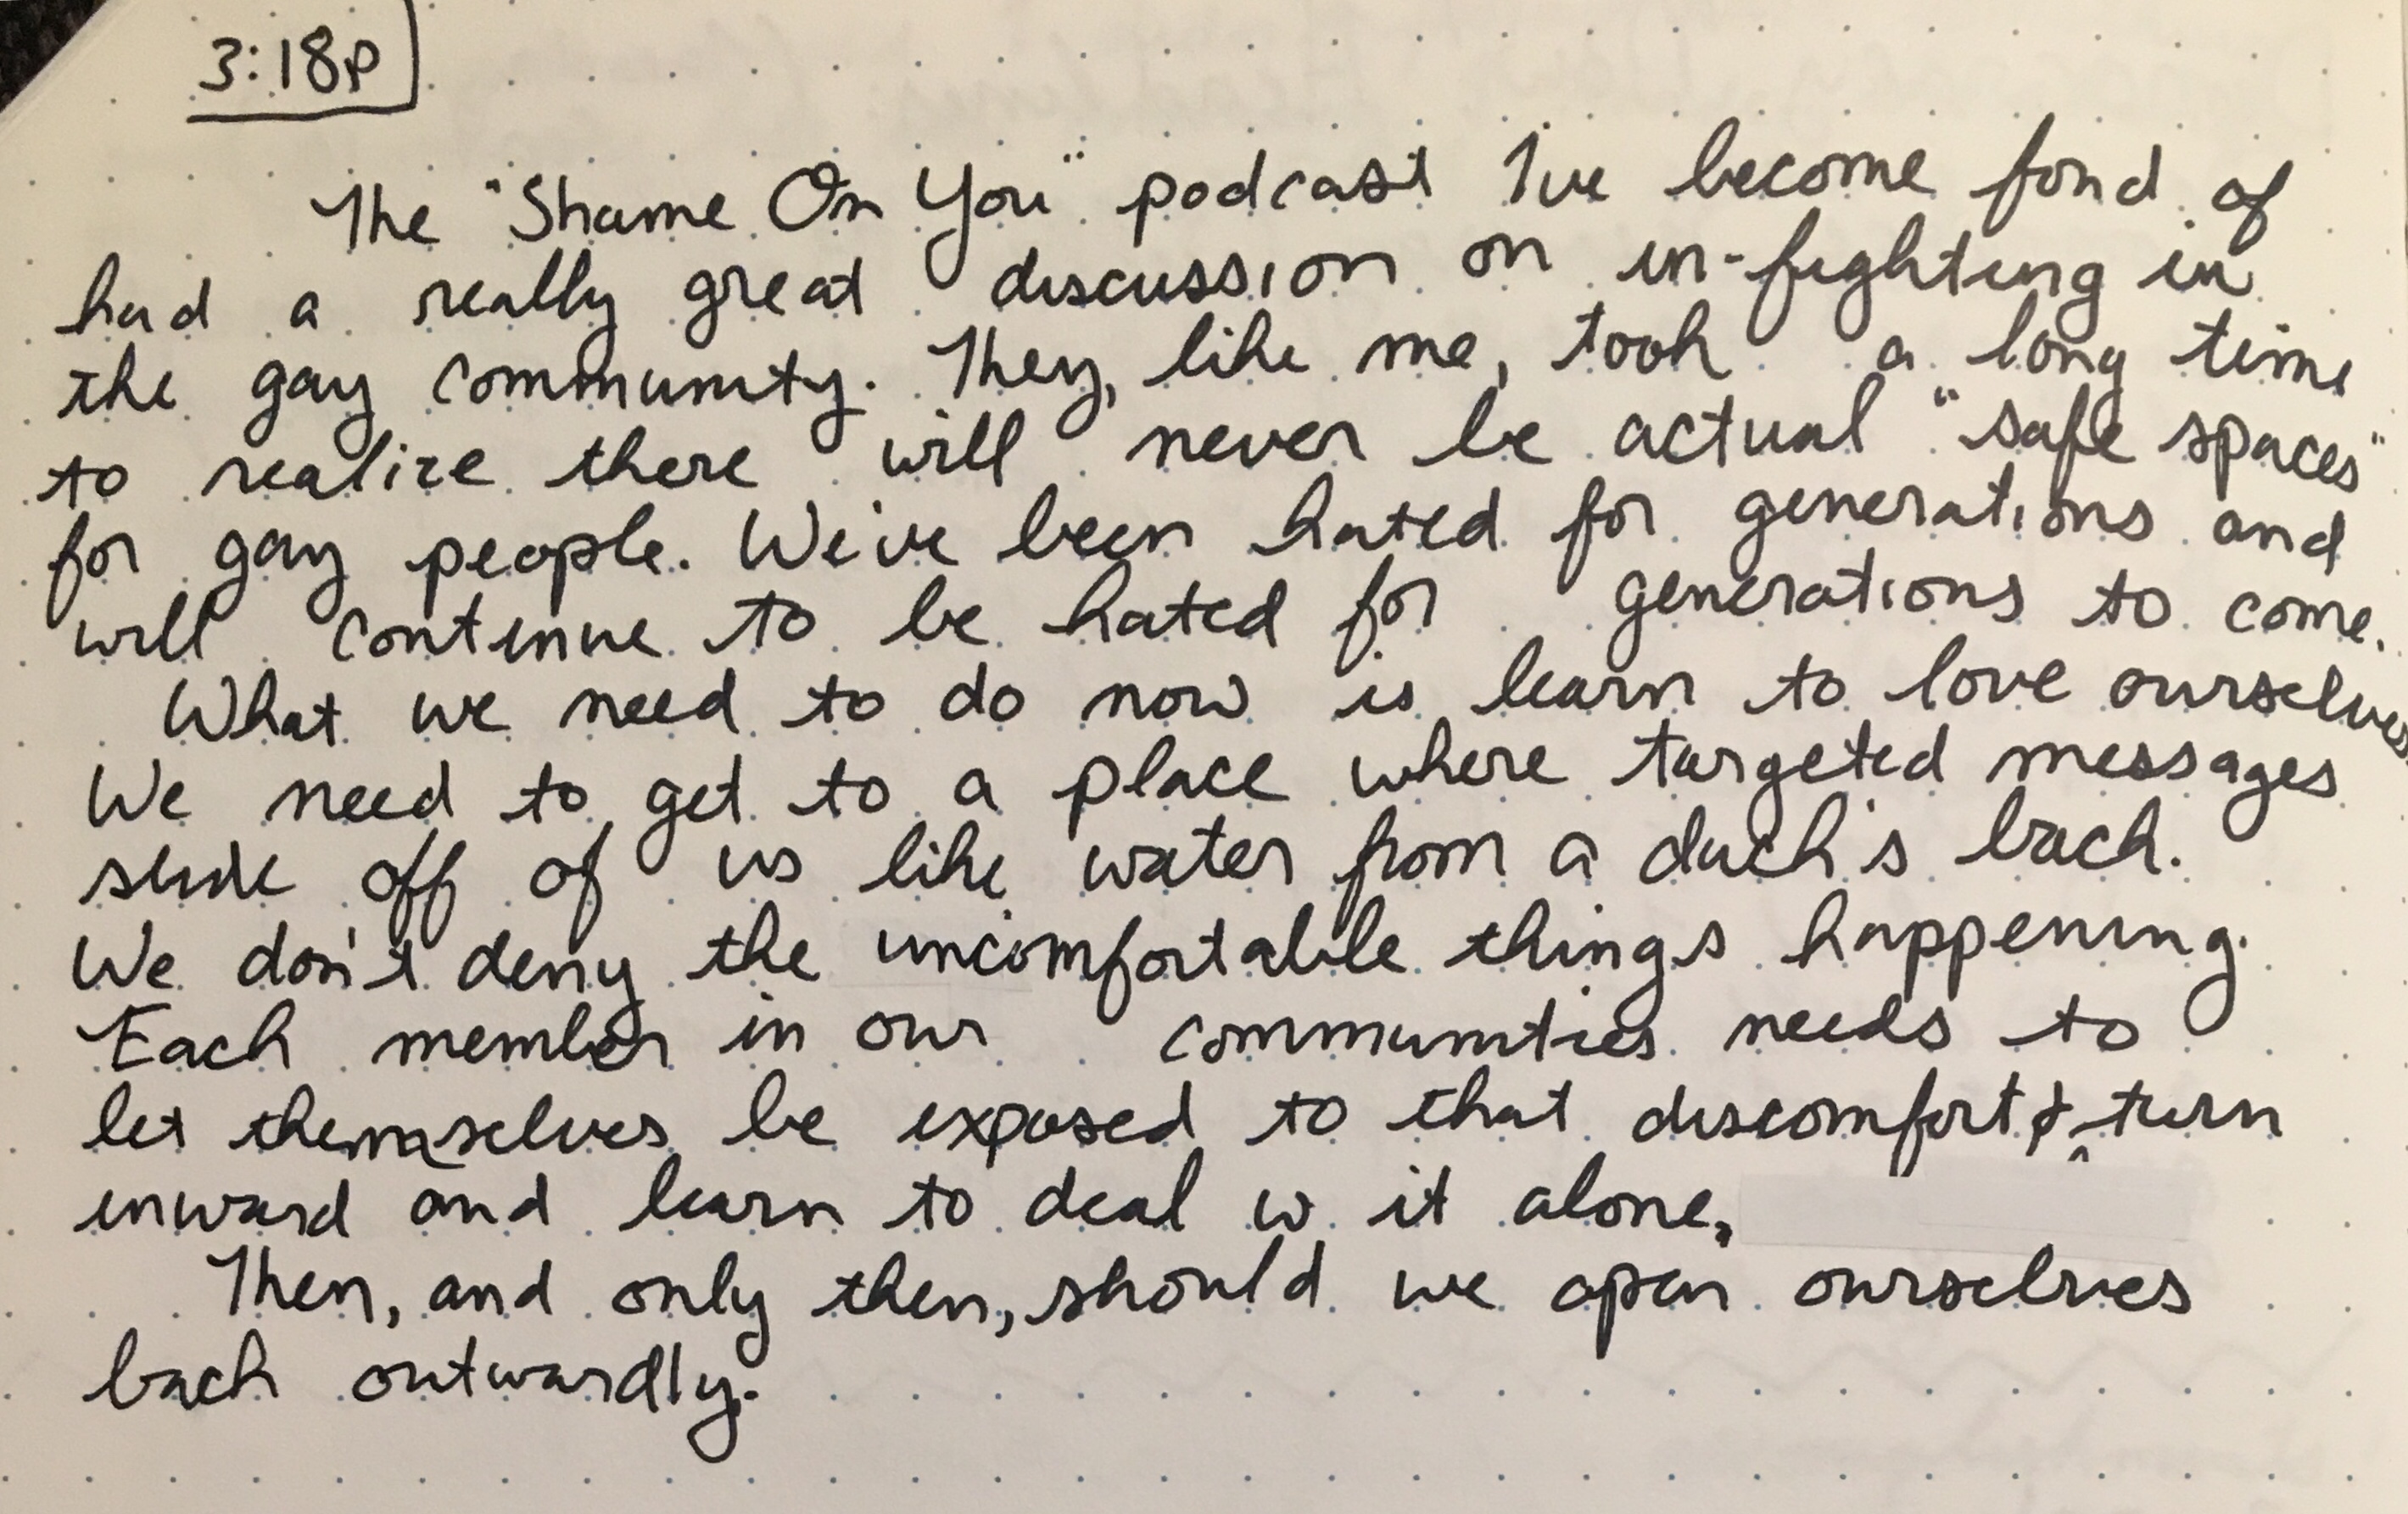 3:18p
The "Shame On You" podcast I've become fond of
had a really great discussion on in-fighting in
the gay community. They, like me, took a long time
to realize there will never be actual "safe spaces"
for gay people. We've been hated for generations and
will continue to be hated for generations to come.
What we need to do now is learn to love ourselves
We need to get to a place where targeted messages
slide off of us like water from a duck's back.
We don't deny the uncomfortable things happening.
Each member in our communities needs to
let themselves be exposed to that discomfort & turn
inward and learn to deal w it alone.
Then, and only then, should we open ourselves
back outwardly.